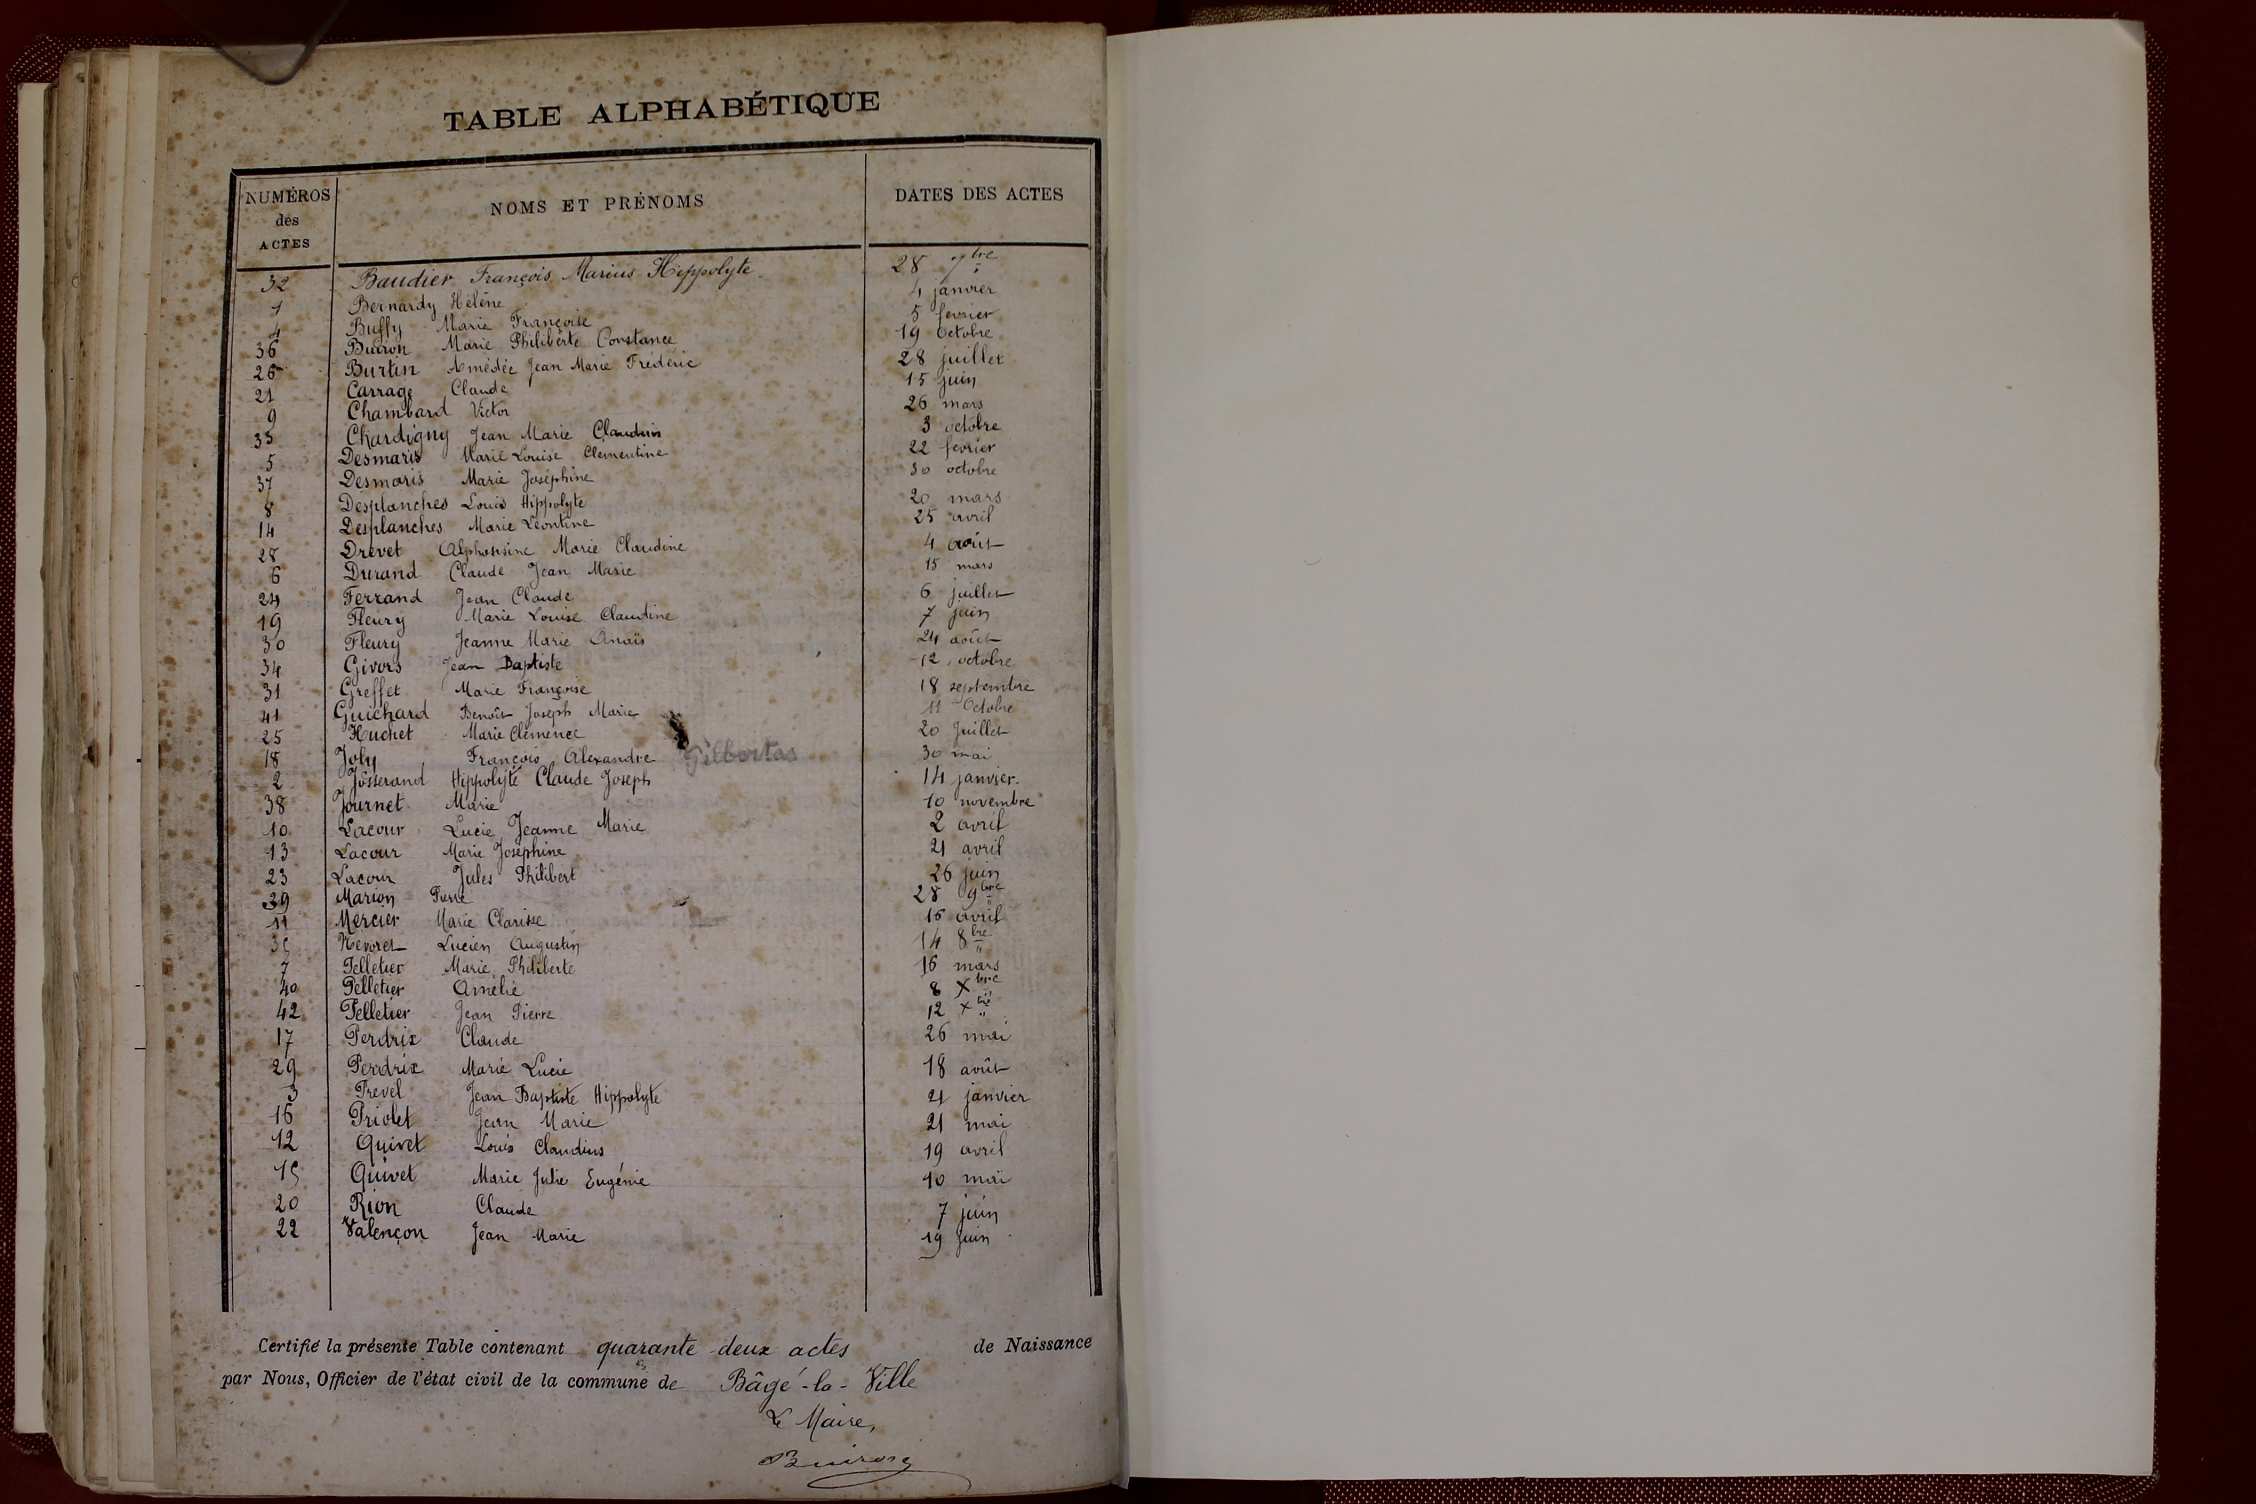 TABLE ALPHABÉTIQUE
NUMÉROS des ACTES NOMS ET PRÉNOMS DATES DES ACTES
32 Baudier François Marius Hippolyte 28 7bre
1 Bernardy Hélène 4 janvier
4 Buffy Marie Françoise 5 fevrier
36 Buiron Marie Philiberte Constance 19 Octobre
26 Burtin Amédée Jean Marie Frédéric 28 juillet
21 Carrage Claude 15 juin
9 Chambard Victor 26 mars
33 Chardigny Jean Marie Claudius 3 octobre
5 Desmaris Marie Louise Clementine 22 fevrier
37 Desmaris Marie Joséphine 30 octobre
8 Desplanches Louis Hippolyte 20 mars
14 Desplanches Marie Léontine 25 avril
28 Drevet Alphonsine Marie Claudine 4 août
6 Durand Claude Jean Marie 15 mars
24 Ferrand Jean Claude 6 juillet
19 Fleury Marie Louise Claudine 7 juin
30 Fleury Jeanne Marie Anaïs 24 août
34 Givors Jean Baptiste 12 octobre
31 Greffet Marie Françoise 18 septembre
41 Guichard Benoît Joseph Marie 11 Octobre
25 Huchet Marie Clémence 20 Juillet
18 Joly François Alexandre Gilbertas 30 mai
2 Josserand Hippolyte Claude Joseph 14 janvier
38 Journet Marie 10 novembre
10 Lacour Lucie Jeanne Marie 2 avril
13 Lacour Marie Joséphine 21 avril
23 Lacour Jules Philibert 26 juin
39 Marion Pierre 28 9bre
11 Mercier Marie Clarisse 16 avril
35 Nevoret Lucien Augustin 14 8bre
7 Pelletier Marie Philiberte 16 mars
40 Pelletier Amélie 8 Xbre
42 Pelletier Jean Pierre 12 Xbre
17 Perdrix Claude 26 mai
29 Perdrix Marie Lucie 18 août
3 Prevel Jean Baptiste Hippolyte 21 janvier
16 Priolet Jean Marie 21 mai
12 Quivet Louis Claudius 19 avril
15 Quivet Marie Julie Eugénie 10 mai
20 Rion Claude 7 juin
22 Valençon Jean Marie 19 Juin
Certifié la présente Table contenant quarante deux actes de Naissance
par Nous, Officier de l'état civil de la commune de Bâgé-la-Ville
Le Maire,
Buiron